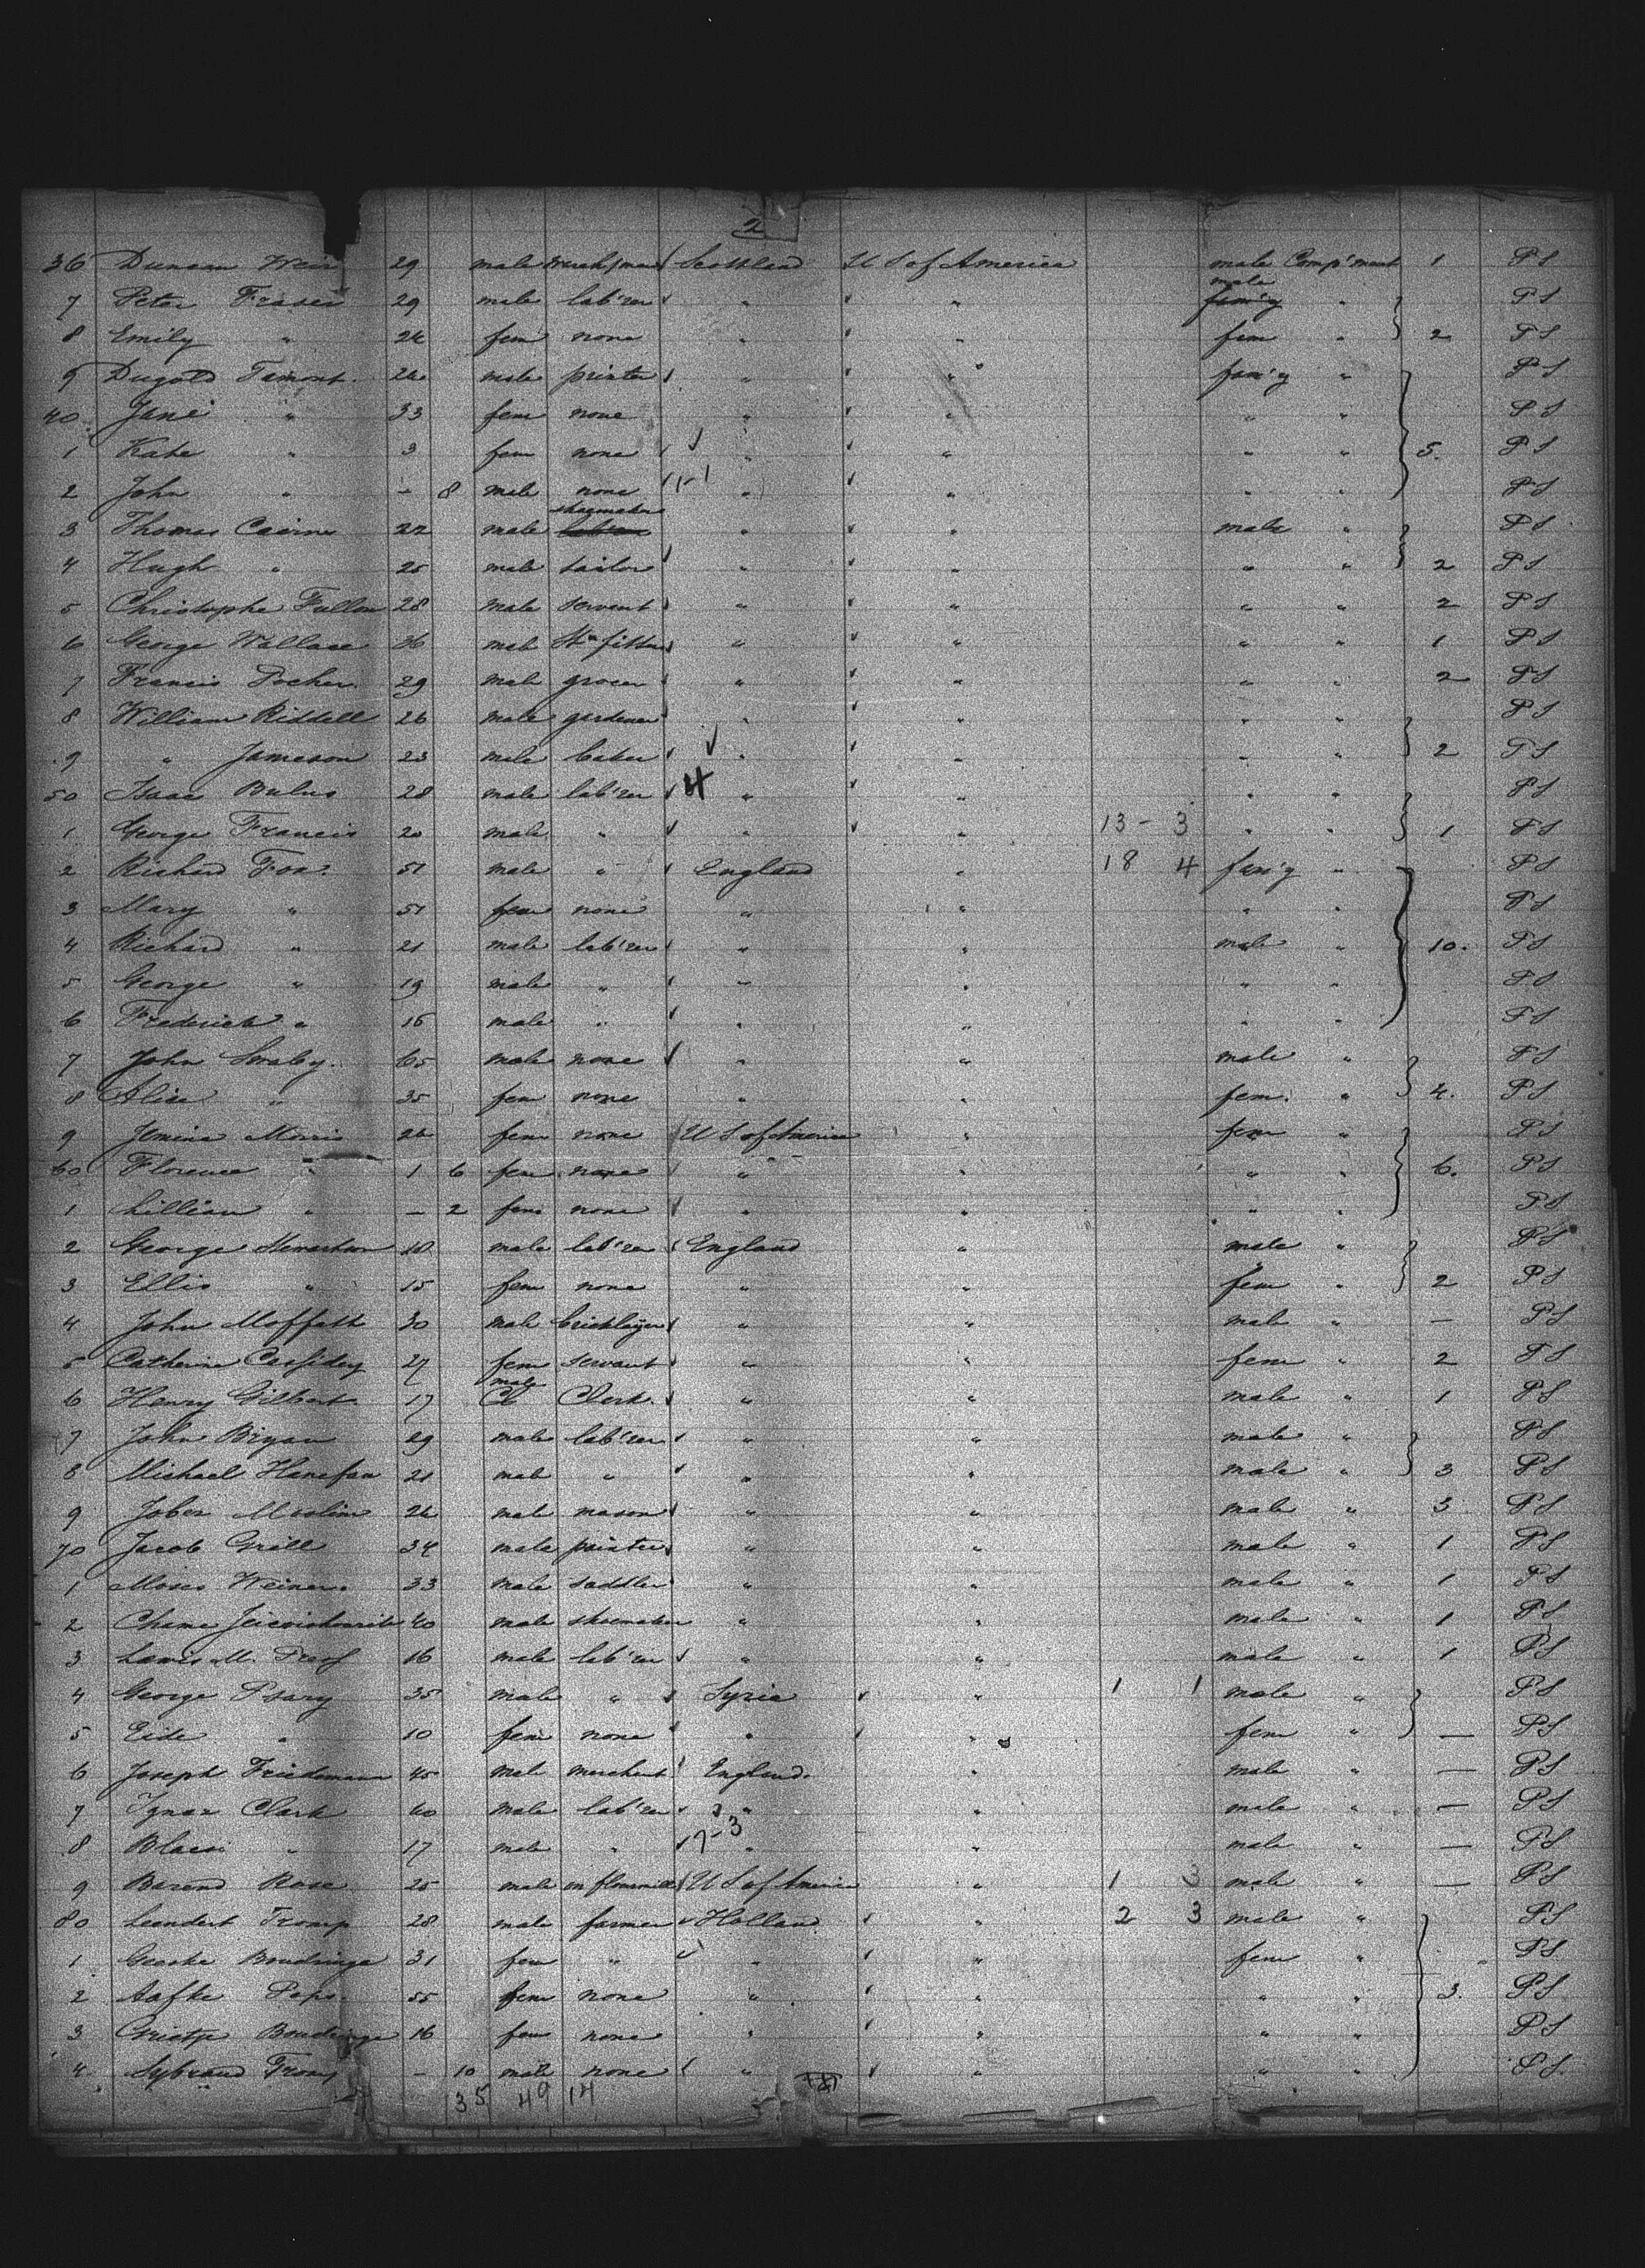 2
36 Duncan Weir 29 male Scotland U S of America male Comp'ment 1 P S
7 Peter Fraser 29 male lab'rer " " male " P S
8 Emily " 24 fem none " " fem " 2 P S
9 Dugold 24 male printer " " fam'y " P S
40 Jane " 33 fem none " " " " P S
1 Kate " 3 fem none " " " " 5. P S
2 John " - 8 male none 11-1 " " " " P S
3 Thomas Cairns 22 male shoemaker " " male " P S
4 Hugh " 25 male tailor " " " " 2 P S
5 Christophe Fallon 28 male servant " " " " 2 P S
6 George Wallace 36 male fitter " " " " 1 P S
7 Francis Pocher 29 male grocer " " " " 2 P S
8 William Riddell 26 male gardener " " " " P S
9 " Jameson 23 male baker " " " " 2 P S
50 Isaac Bulus 28 male lab'rer 4 " " " " P S
1 George Francis 20 male " " " 13 - 3 " " 1 P S
2 Richard Fox 51 male " England " 18 4 fam'y " P S
3 Mary " 51 fem none " " " " P S
4 Richard " 21 male lab'rer " " male " 10. P S
5 George " 19 male " " " " " P S
6 Frederick " 16 male " " " " " P S
7 John Swaby 65 male none " " male " P S
8 Alice " 35 fem none " " fem. " 4. P S
9 Jemina Morris 24 fem none U S of America " fem " P S
60 Florence " 1 6 fem none " " " " 6. P S
1 Lillian " - 2 fem none " " " " P S
2 George 48 male lab'rer England " male " P S
3 Ellis " 15 fem none " " fem " 2 P S
4 John Moffatt 30 male bricklayer " " male " — P S
5 Catherine Cassidey 27 fem servant " " fem " 2 P S
6 Henry Gilbert 17 male Clerk " " male " 1 P S
7 John Bryan 29 male lab'rer " " male " P S
8 Michael Hanafan 21 male " " " male " 3 P S
9 Jobez 24 male mason " " male " 3 P S
70 Jacob Grill 34 male painter " " male " 1 P S
1 Moses Weiner 33 male saddler " " male " 1 P S
2 Chame 40 male shoemaker " " male " 1 P S
3 Lawis M. 16 male lab'rer " " male " 1 P S
4 George Psary 35 male " Syria " 1 1 male " P S
5 Eide " 10 fem none " " fem " — P S
6 Joseph Friedemann 45 male merchant England " male " — P S
7 Ignaz Clark 40 male lab'rer " " male " — P S
8 Blaesi " 17 male " 7-3 " " male " — P S
9 Barend Rose 25 male in flourmill U S of America " 1 3 male " — P S
80 Leendert Tromp 28 male farmer Holland " 2 3 male " P S
1 Geeske Boudringa 31 fem " " " fem " P S
2 Aafke 55 fem none " " " " 3. P S
3 Grietje Boudringa 16 fem none " " " " P S
4 Sybrand Tromp - 10 male none " " " " P S
35 49 14